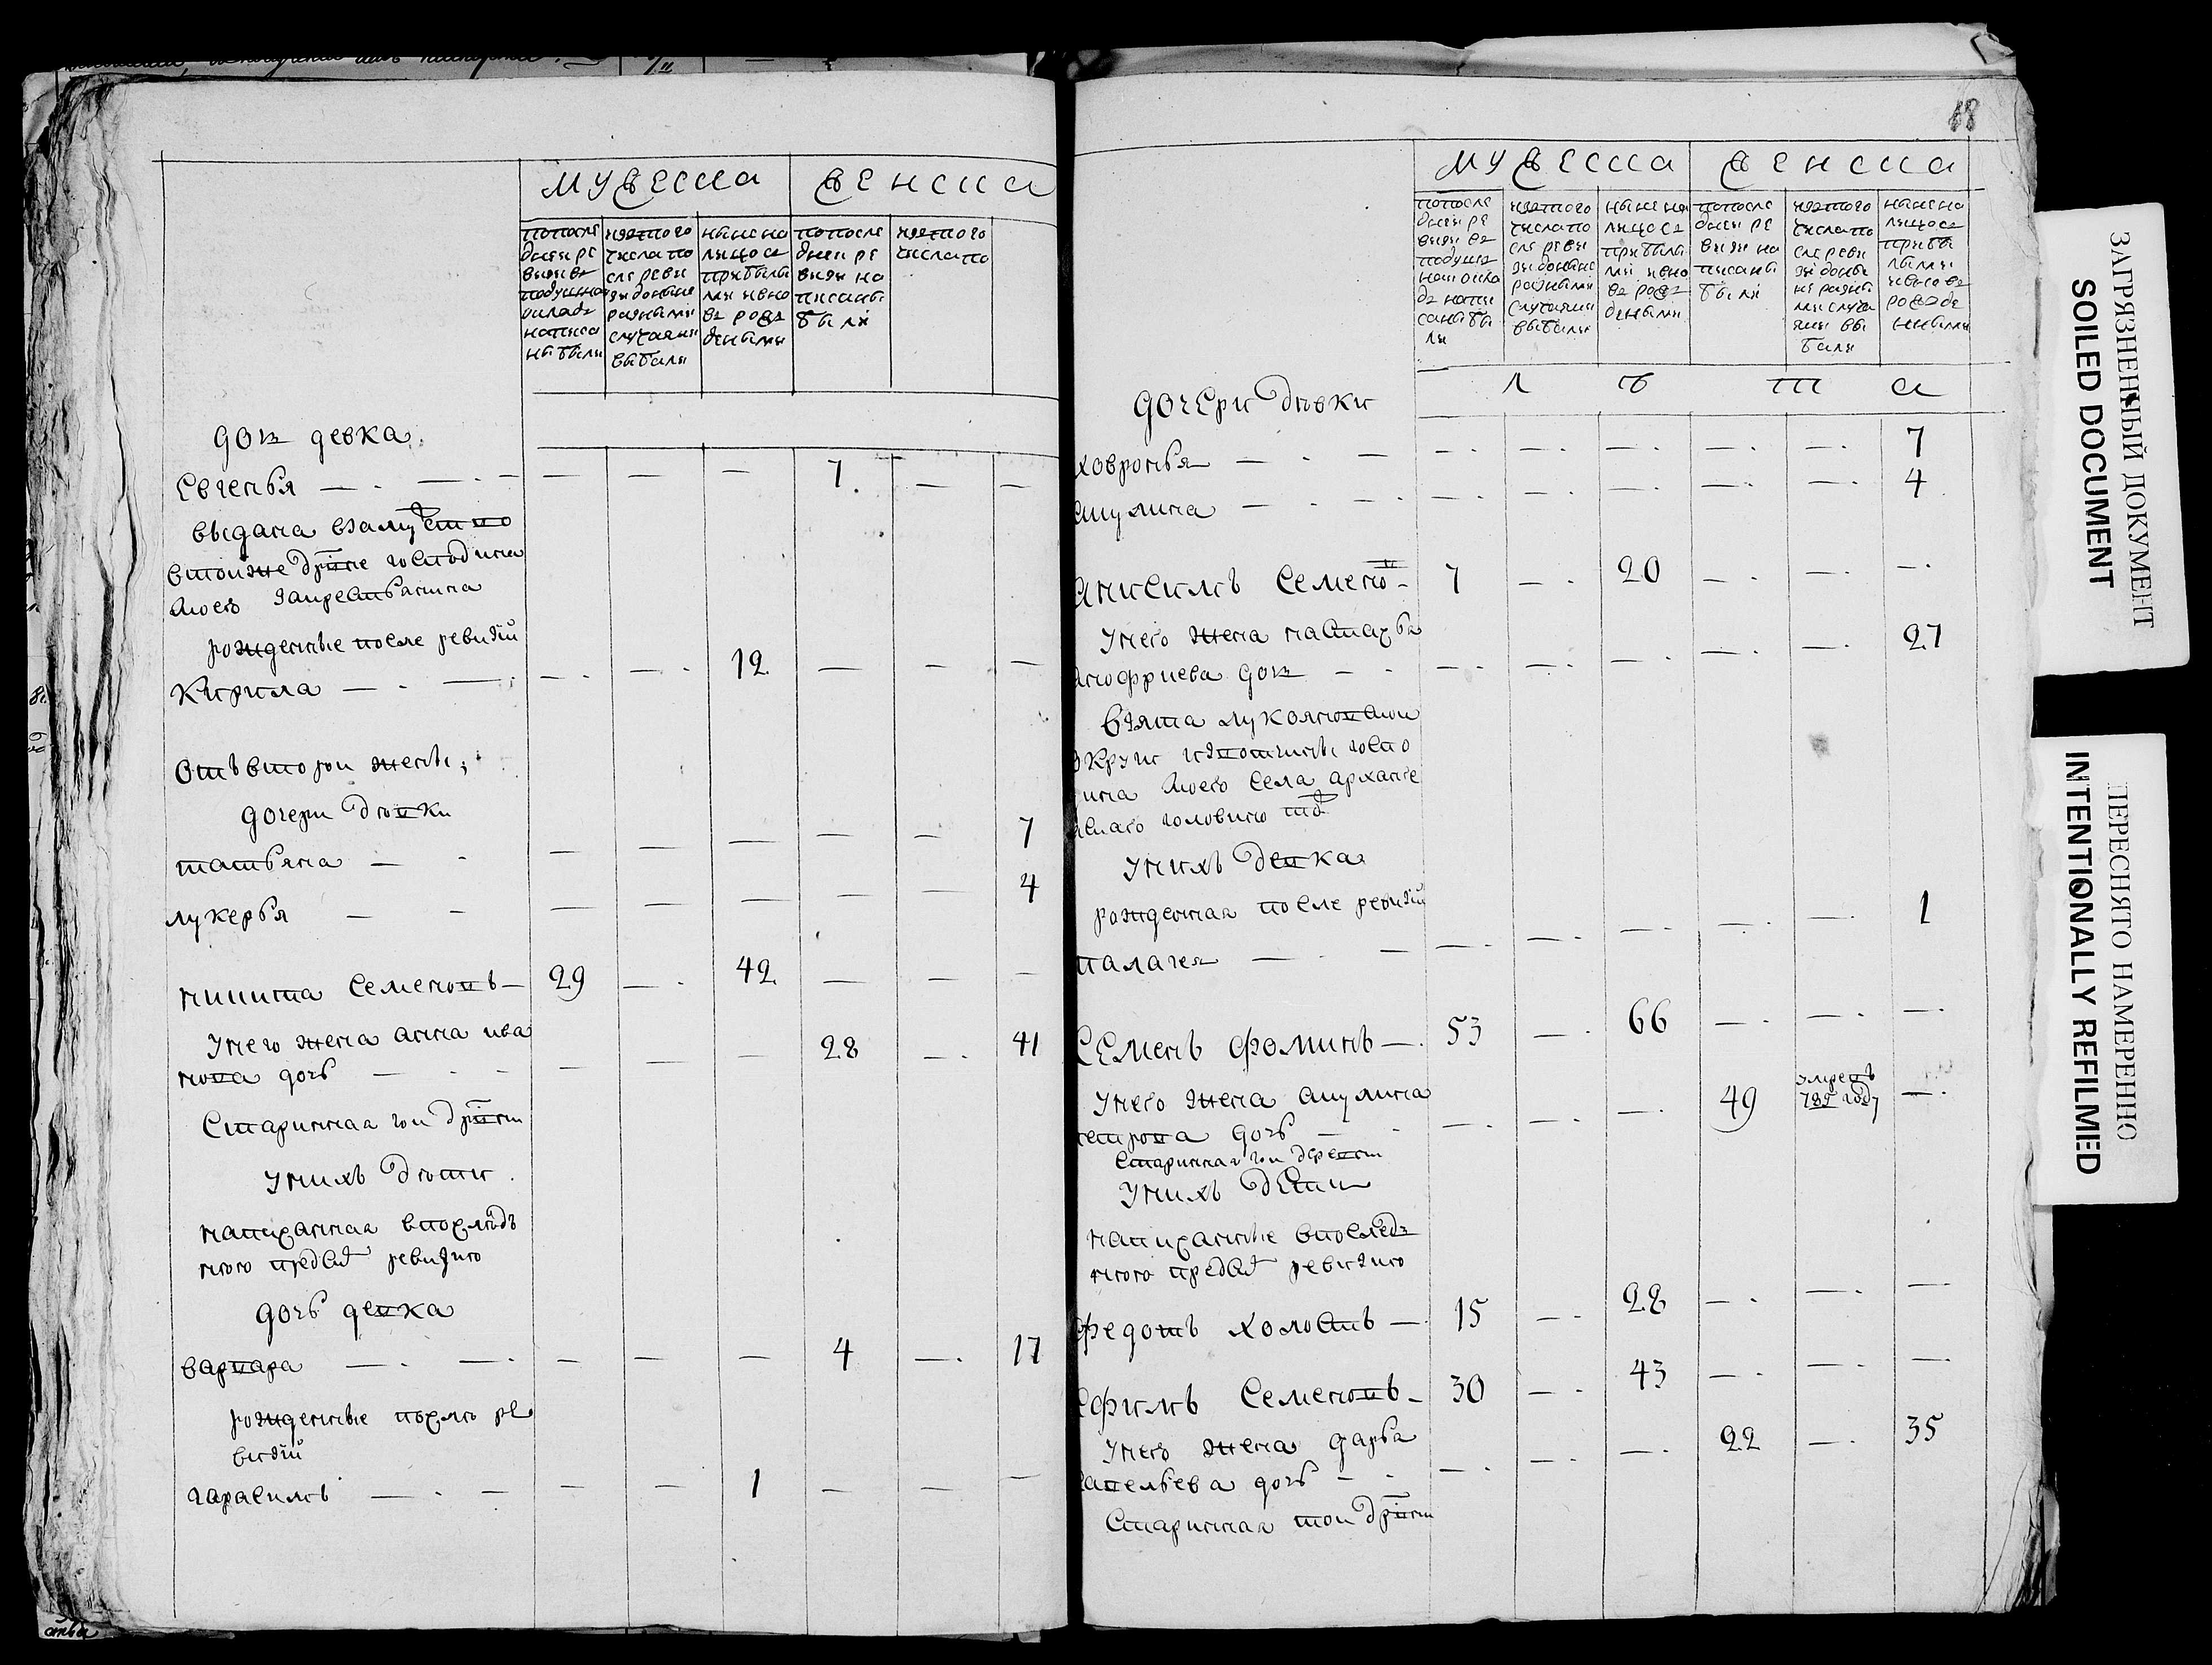 мужеска женска
попосле дней ре визии въ подушной окладъ написа ны были
изътого числа по сле реви зи доныне разными случаями выбыли
ныне на лицо съ прибылы ми и вно въ рожъ деными
попосле дней ре визии на писаны были
изътого числа по
дочь девка
Евгенья — — — — 7 — —
выдана взамужство
втойже дрвне господина
моего
рожденные после ревизiи
Кирила — — — — 12 — — —
отъ второй жены
дочери девки
татьяна — — — — — — — 7
лукерья — — — — — — — 4
никита Семеновъ — 29 — 42 — — —
унего жена анна ива
нова дочь — — — — 28 — 41
Старинная тои дрвни
унихъ дети
написанная впослѣд
нюю пред сей ревизию
дочь девка
варвара — — — — — 4 — 17
рожденные после ре
визiи
гарасимъ — — — — 1 — — —
18
мужеска женска
попосле дней ре визии въ подуш ном окла де напи саны бы ли
изътого числа по сле реви зи доныне разными случаями выбыли
ныне на лицо съ прибылы ми и вно въ рожъ деными
попосле дней ре визии на писаны были
изътого числа по сле реви зи доны не разны ми случа ями вы были
ныне на лицо съ прибы лыми и вновъ рожде нными
л ѣ т а
дочери девки
ховронья — — — — — — — 7
акулина — — — — — — — 4
анисимъ Семено- 7 — 20 — — —
унего жена настасья
анофриева дочь — — — — — — 27
взята лукояновской
округи изъотчины госпо
дина моего села арханге
лскаго головино тож
унихъ девка
рожденная после ревизiи
палагея — — — — — — — 1
Семенъ фоминъ — 53 — 66 — — —
унего жена акулина
петрова дочь — — — — 49 умре въ 785 году —
Старинная тои деревни
унихъ дети
написанные впослед
нюю пред сей ревизию
федотъ холостъ — 15 — 28 — — —
Ефимъ Семеновъ — 30 — 43 — — —
унего жена дарья
савельева дочь — — — — 22 — 35
Старинная тои дрвни
ЗАГРЯЗНЕННЫЙ ДОКУМЕНТ
SOILED DOCUMENT
ПЕРЕСНЯТО НАМЕРЕННО
INTENTIONALLY REFILMED